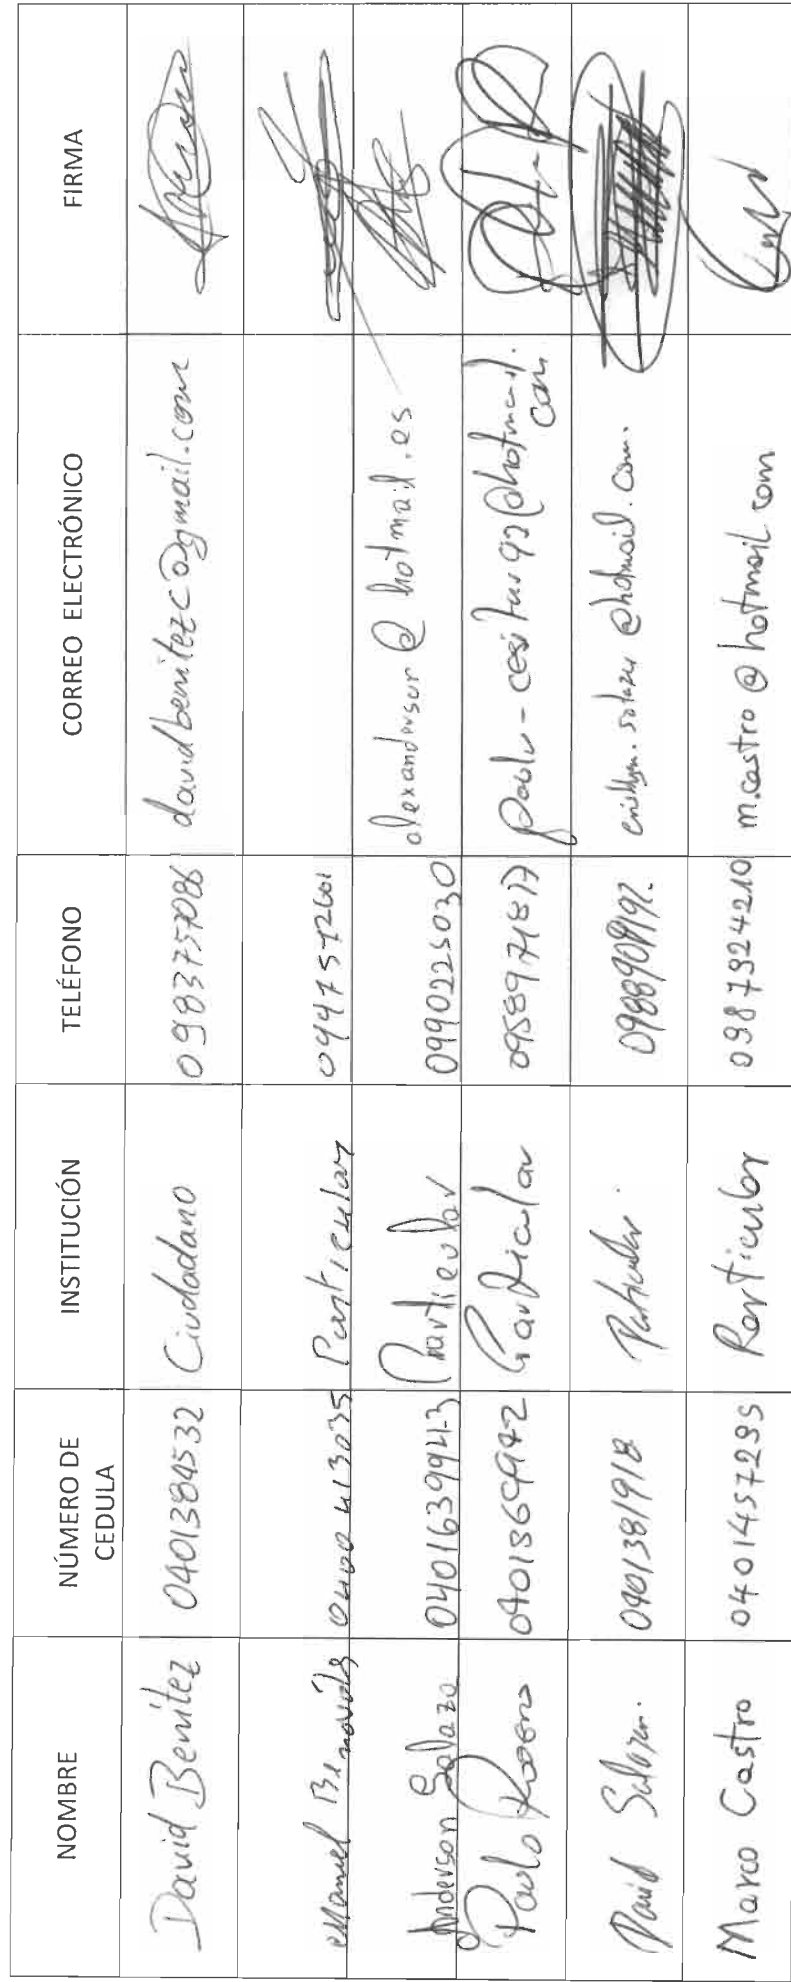 NOMBRE NÚMERO DE CEDULA INSTITUCIÓN TELÉFONO CORREO ELECTRÓNICO FIRMA
David Benítez 0401384532 Ciudadano 0983757086 davidbenitezc@gmail.com
Manuel Benavides 0400413035 Particular
Anderson Salazar 0401639943 Particular 0990225030 alexandersur@hotmail.es
Paulo 0401369942 Particular 0958971817
David Salazar. 0401381918 Particular. 0988908192.
Marco Castro 0401457295 Particular 0987924210 m.castro@hotmail.com